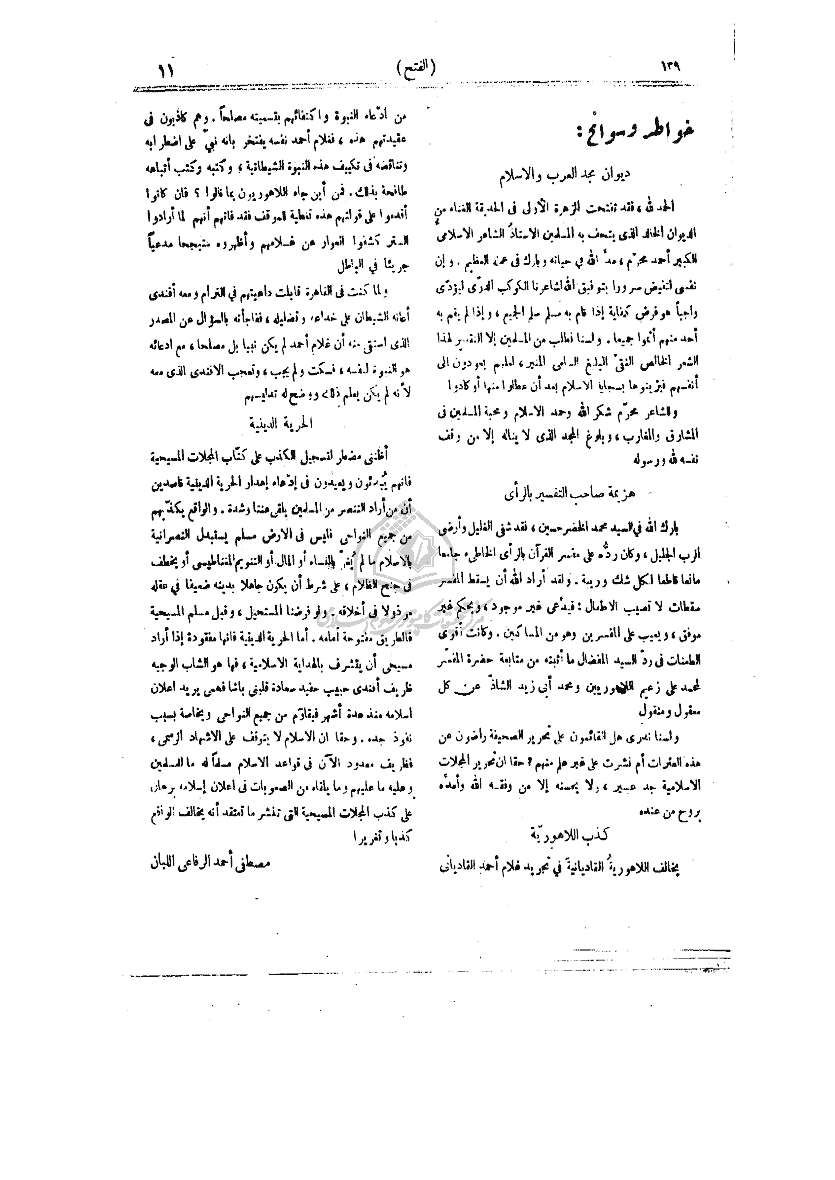 ١٣٩
(الفتح)
١١
خواطر وسوانح :
ديوان مجد العرب والاسلام
الحمد لله ، فقد تفتحت الزهرة الأولى فى الحديقة الغناء من
الديوان الخالد الذى يتحف به المسلمين الاستاذ الشاعر الاسلامى
الكبير أحمد محرّم ، مدّ الله في حياته وبارك فى عمله العظيم . وإن
نفسى لتفيض سرورا بتوفيق الله لشاعرنا الكوكب الدرّى ليؤدّى
واجباً هو فرض كفاية إذا قام به مسلم سلم الجميع ، وإذا لم يقم به
أحد منهم أثموا جميعا . ولسنا نطلب من المسلمين إلا التقدير لهذا
الشعر الخالص النقىّ البليغ السامى المنير ، لعلهم يعودون الى
أنفسهم فيزينوها بسجايا الاسلام بعد أن عطلوا منها أو كادوا
وللشاعر محرّم شكر الله وحمد الاسلام ومحبة المسلمين فى
المشارق والمغارب ، وبلوغ المجد الذى لا يناله إلا من وقف
نفسه لله ورسوله
هزيمة صاحب التفسير بالرأى
بارك الله في السيد محمد الخضر حسين ، فقد شفى الغليل وأرضى
الرب الجليل ، وكان ردُّه على مفسر القرآن بالرأى الخاطىء جامعا
مانعا قاطعا لكل شك وريبة . ولقد أراد الله أن يسقط المفسر
سقطات لا تصيب الاطفال : فيدّعى غير موجود ، ويحكم غير
موفق ، ويعيب على المفسرين وهو من المساكين . وكانت أقوى
الطعنات فى ردّ السيد المفضال ما أثبته من متابعة حضرة المفسّر
لمحمد على زعيم اللاهوريين ومحمد أبى زيد الشاذّ عن كل
معقول ومنقول
ولسنا ندرى هل القائمون على تحرير الصحيفة راضون عن
هذه العثرات أم نشرت على غير علم منهم ? حقا ان تحرير المجلات
الاسلامية جد عسير ، ولا يحسنه إلا من وفقه الله وأمدّه
بروح من عنده
كذب اللاهوريّة
يخالف اللاهوريةُ القاديانيةَ في تجريد غلام أحمد القاديانى
من ادّعاء النبوة واكتفائهم بتسميته مصلحاً . وهم كاذبون فى
عقيدتهم هذه ، فغلام أحمد نفسه يفتخر بانه نبىّ على اضطرابه
وتناقضه فى تكييف هذه النبوة الشيطانية ، وكتبه وكتب أتباعه
طافحة بذلك . فمن أين جاء اللاهوريون بما قالوا ؟ فان كانوا
أقدموا على قولتهم هذه تغطية للموقف فقد فاتهم أنهم لما أرادوا
الستر كشفوا العوار عن غلامهم وأظهروه متبجحا مدعياً
جريئا في الباطل
ولما كنت فى القاهرة قابلت داهيتهم في الترام ومعه أفندى
أعانه الشيطان على خداعه وتضليله ، ففاجأته بالسؤال عن المصدر
الذى استقى منه أن غلام أحمد لم يكن نبيا بل مصلحا ، مع ادعائه
هو النبوة لنفسه ، فسكت ولم يجب ، وتعجب الافندى الذى معه
لأنه لم يكن يعلم ذلك ووضح له تدليسهم
الحرية الدينية
أظننى مضطر لتسجيل الكذب على كتّاب المجلات المسيحية
فانهم يُبدئون ويعيدون فى إدّعاء إهدار الحرية الدينية قاصدين
أن من أراد التنصر من المسلمين يلقى عنتا وشدة . والواقع يكذّبهم
من جميع النواحي فليس فى الارض مسلم يستبدل النصرانية
بالاسلام ما لم يُغرّ بالنساء أو المال أو التنويم المغناطيسى أو يخطف
فى جنح الظلام ، على شرط أن يكون جاهلا بدينه ضعيفا في عقله
مرذولا فى أخلاقه . ولو فرضنا المستحيل ، وقبل مسلم المسيحية
فالطريق مفتوحة أمامه . أما الحرية الدينية فانها مفقودة إذا أراد
مسيحى أن يتشرف بالهداية الاسلامية ، فها هو الشاب الوجيه
ظريف أفندى حبيب حفيد سعادة قلينى باشا فهمى يريد اعلان
اسلامه منذ عدة أشهر فيقاوَم من جميع النواحى وبخاصة بسبب
نفوذ جده . وحقا ان الاسلام لا يتوقف على الاشهاد الرسمى ،
فظريف معدود الآن فى قواعد الاسلام مسلماً له ما للمسلمين
وعليه ما عليهم وما يلقاه من الصعوبات فى اعلان إسلامه برهان
على كذب المجلات المسيحية التى تنشر ما تعتقد أنه يخالف الواقع
كذبا وتغريرا
مصطفى أحمد الرفاعى اللبان